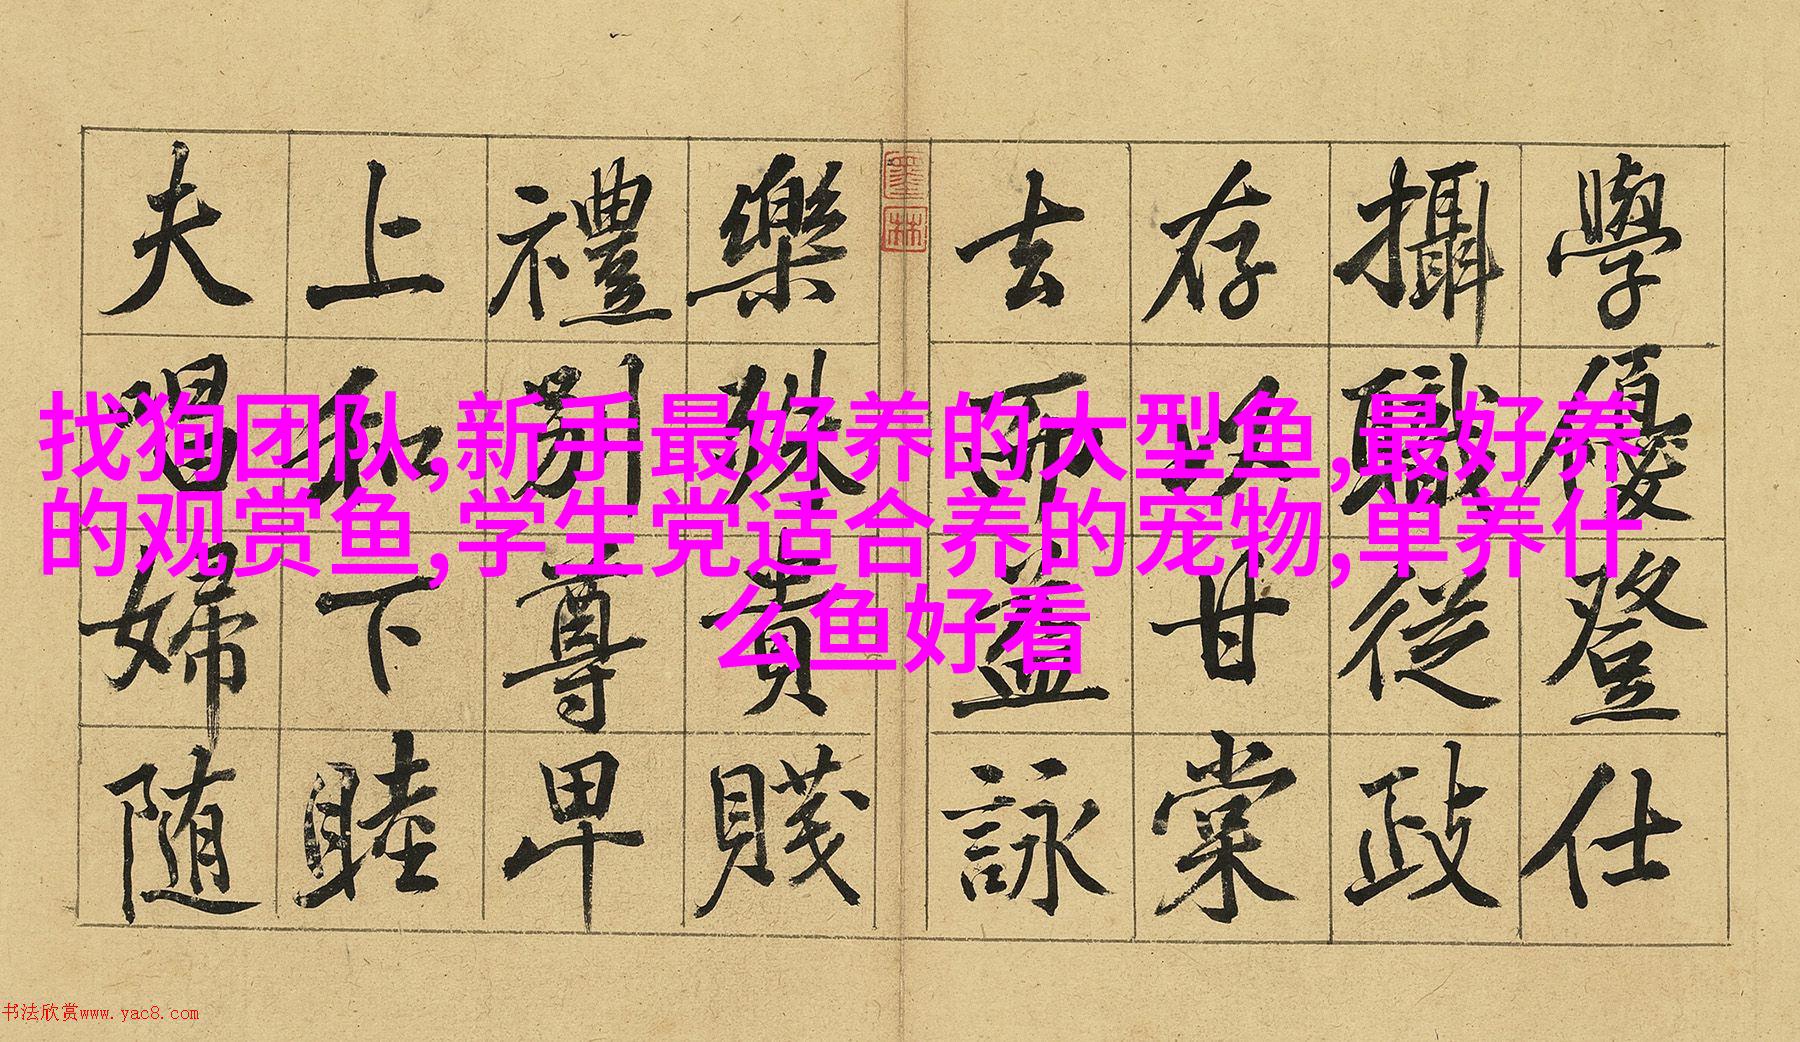 找狗团队,新手最好养的大型鱼,最好养
的观赏鱼,学生党适合养的宠物,单养什
么鱼好看
學優登仕
攝職從政
存以甘棠
去而益詠
樂殊貴賤
禮別尊卑
上和下睦
夫唱婦随
墨林
书法欣赏www.yac8.com